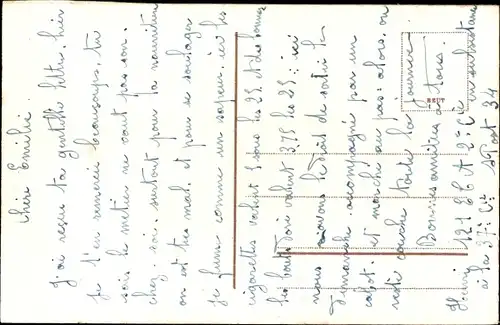 Chère Emilie.
J'ai reçue ta gentille lettre, hier
je t'en remercie beaucoups, tu
sais le metier ne vaut pas son
chez soi, surtout pour la nourriture
on est très mal, et pour se soulager
je fume comme un sapeur, ici les
cigarettes valent 5 sous les 23. A des bonnes
les bouts Doré valent 3,75 les 25; ici
nous avons le droit de sortir le
Dimanche accompagné par un
cabot, et marché au pas, alors, on
reste couché toute la journée.
Bonnes amitiées à tous.
BEUT
Henri 121 S A 2° Cie
à la 37° Cie S Post 34